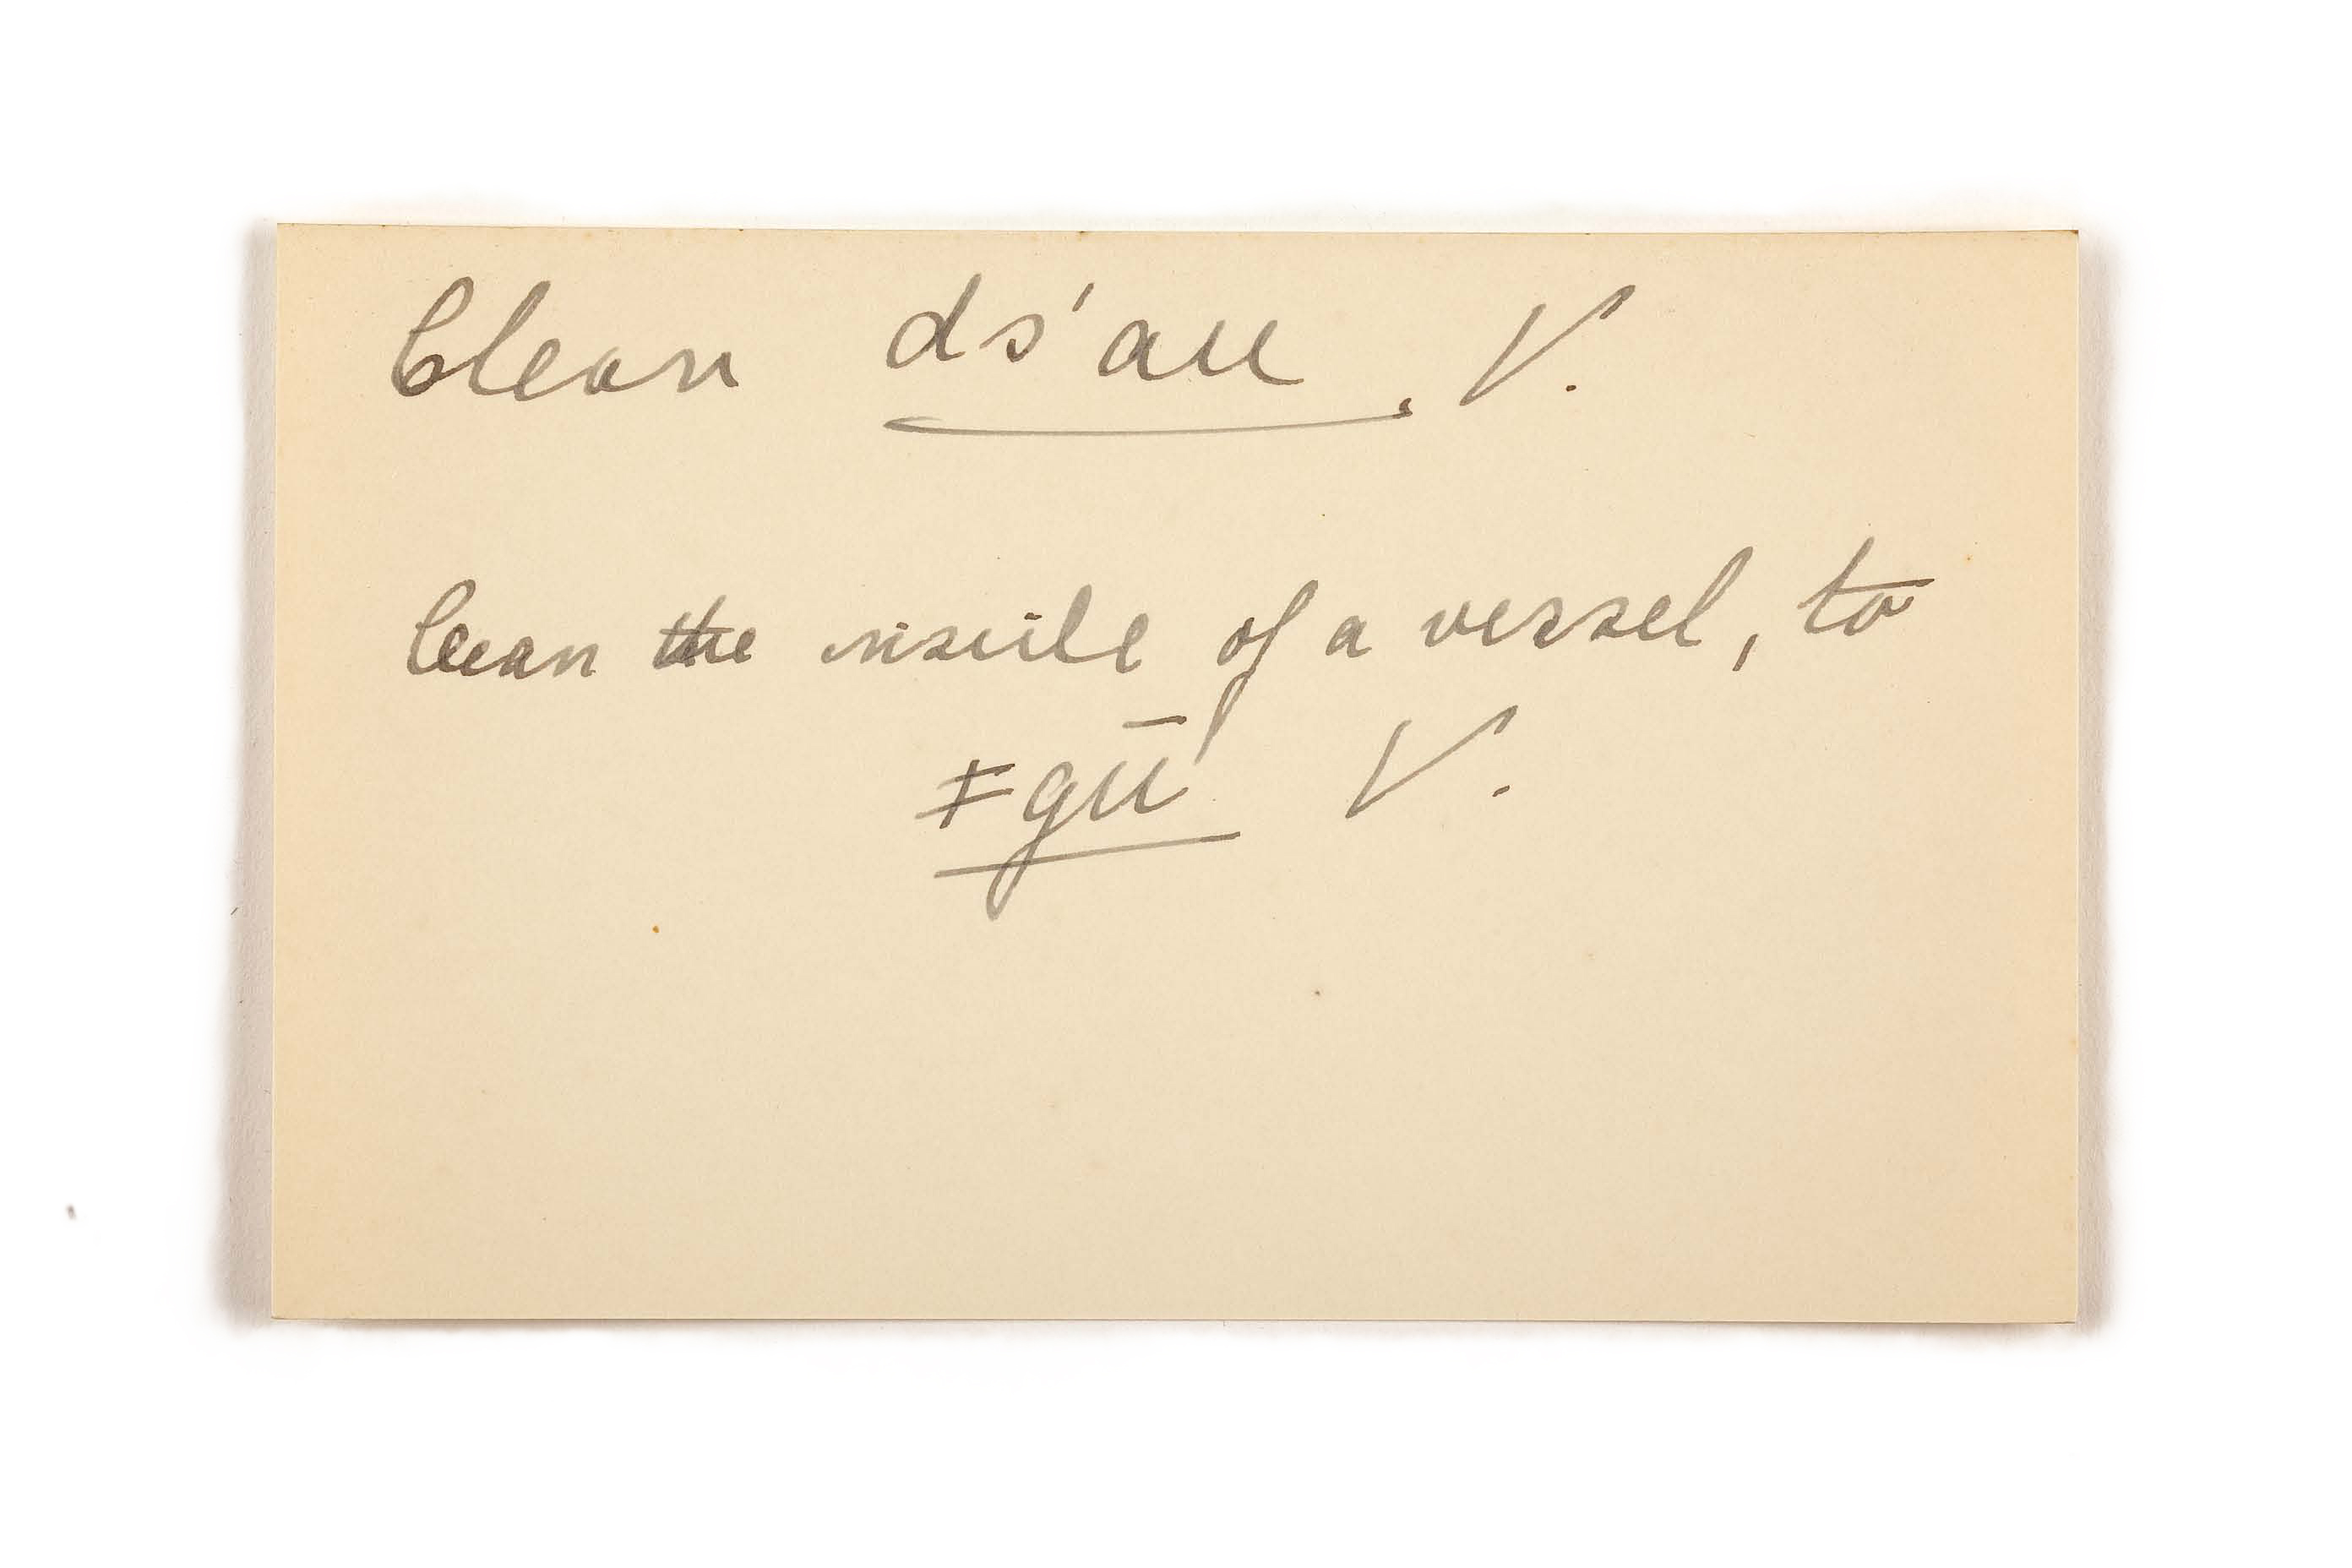 Clean ds'au. V.
Clean the inside of a vessel, to
ǂgū' V.